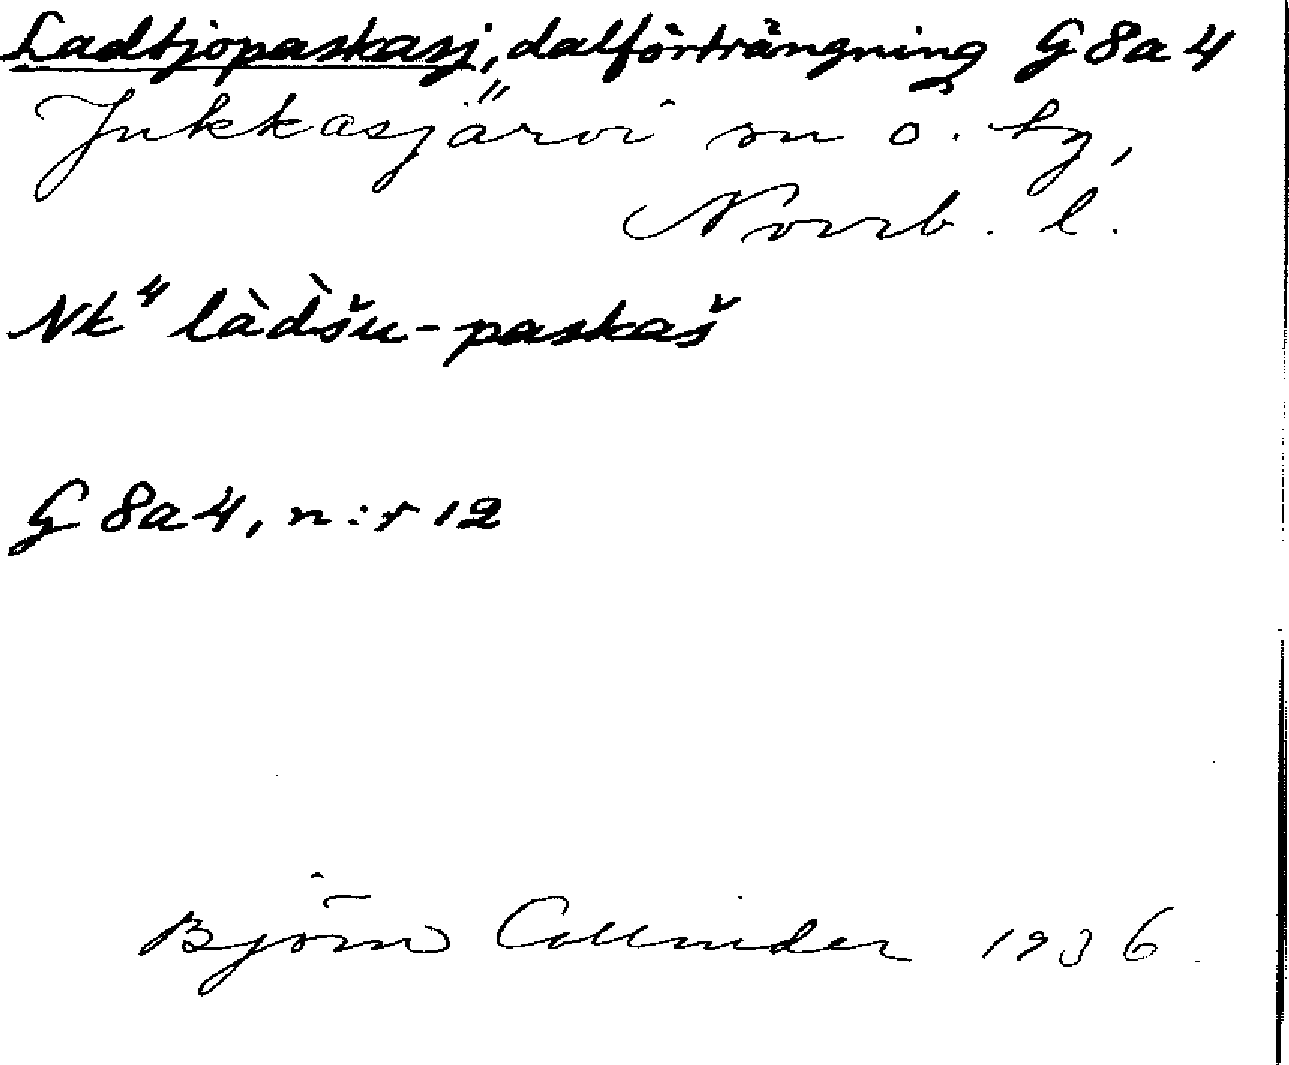 Ladtjopaskasj, dalförträngning G8a4
Jukkasjärvi sn o. tg,
Norrb. l.
Nk⁴ làd̀šu-paskaš
G8a4, n:r 12
Björn Collinder 1936.